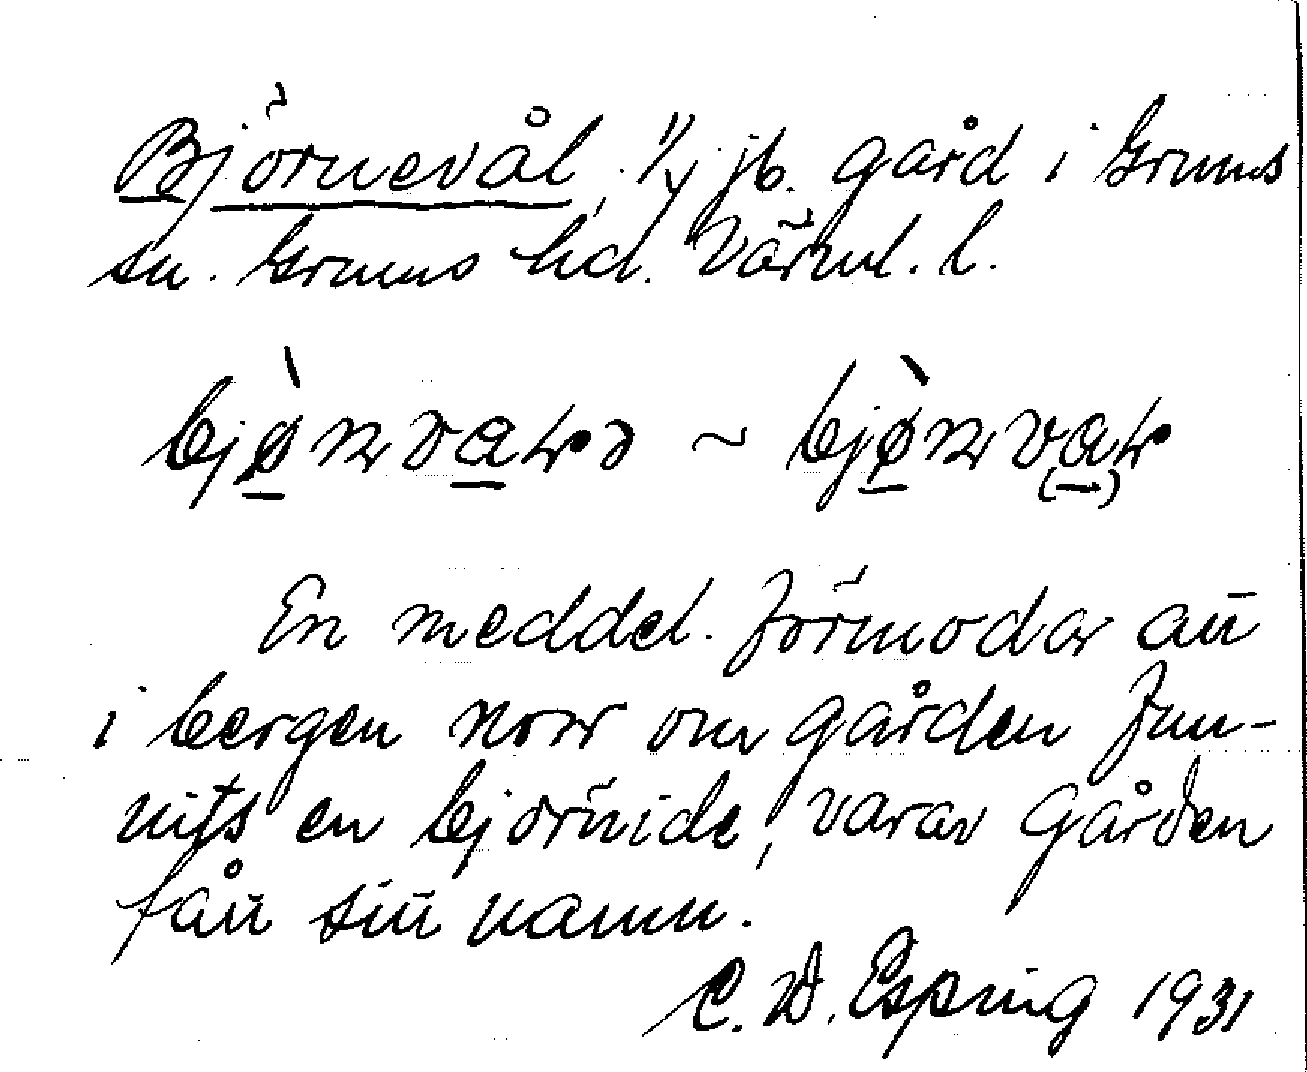 Björnevål, 1/4 jb. gård i Grums
sn. Grums hd. Värml. l.
bjø̀nvaɽə ~ bjø̀nv(a)ɽ
En meddel. förmodar att
i bergen norr om gården fun-
nits en björnide, varav gården
fått sitt namn.
C. W. Esping 1931